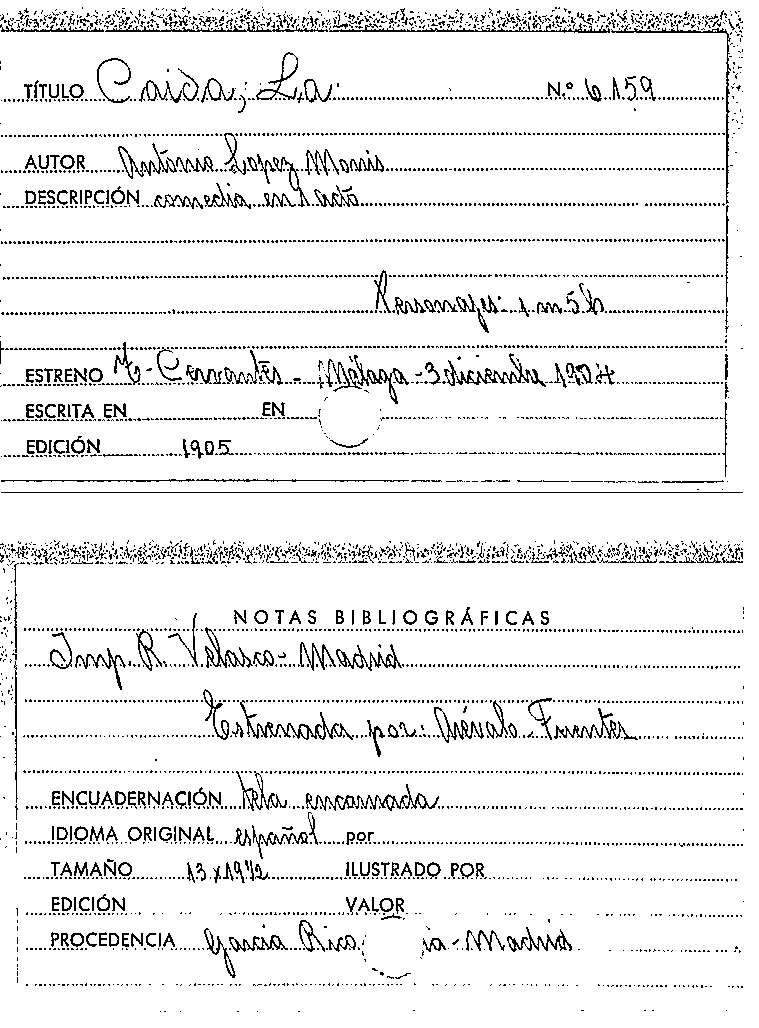 TÍTULO Caida, La N.º 6159
AUTOR Antonio Lopez Monis
DESCRIPCIÓN comedia en 1 acto
Personajes: 1 m 5 h
ESTRENO T- Cervantes - Málaga - 3 diciembre 1904
ESCRITA EN EN
EDICIÓN 1905
NOTAS BIBLIOGRÁFICAS
Imp. R. Velasco - Madrid
Estrenada por: Arévalo - Fuentes
ENCUADERNACIÓN tela encarnada
IDIOMA ORIGINAL español por
TAMAÑO 13 x 19 1/2 ILUSTRADO POR
EDICIÓN VALOR
PROCEDENCIA Garcia Rico, ia - Madrid